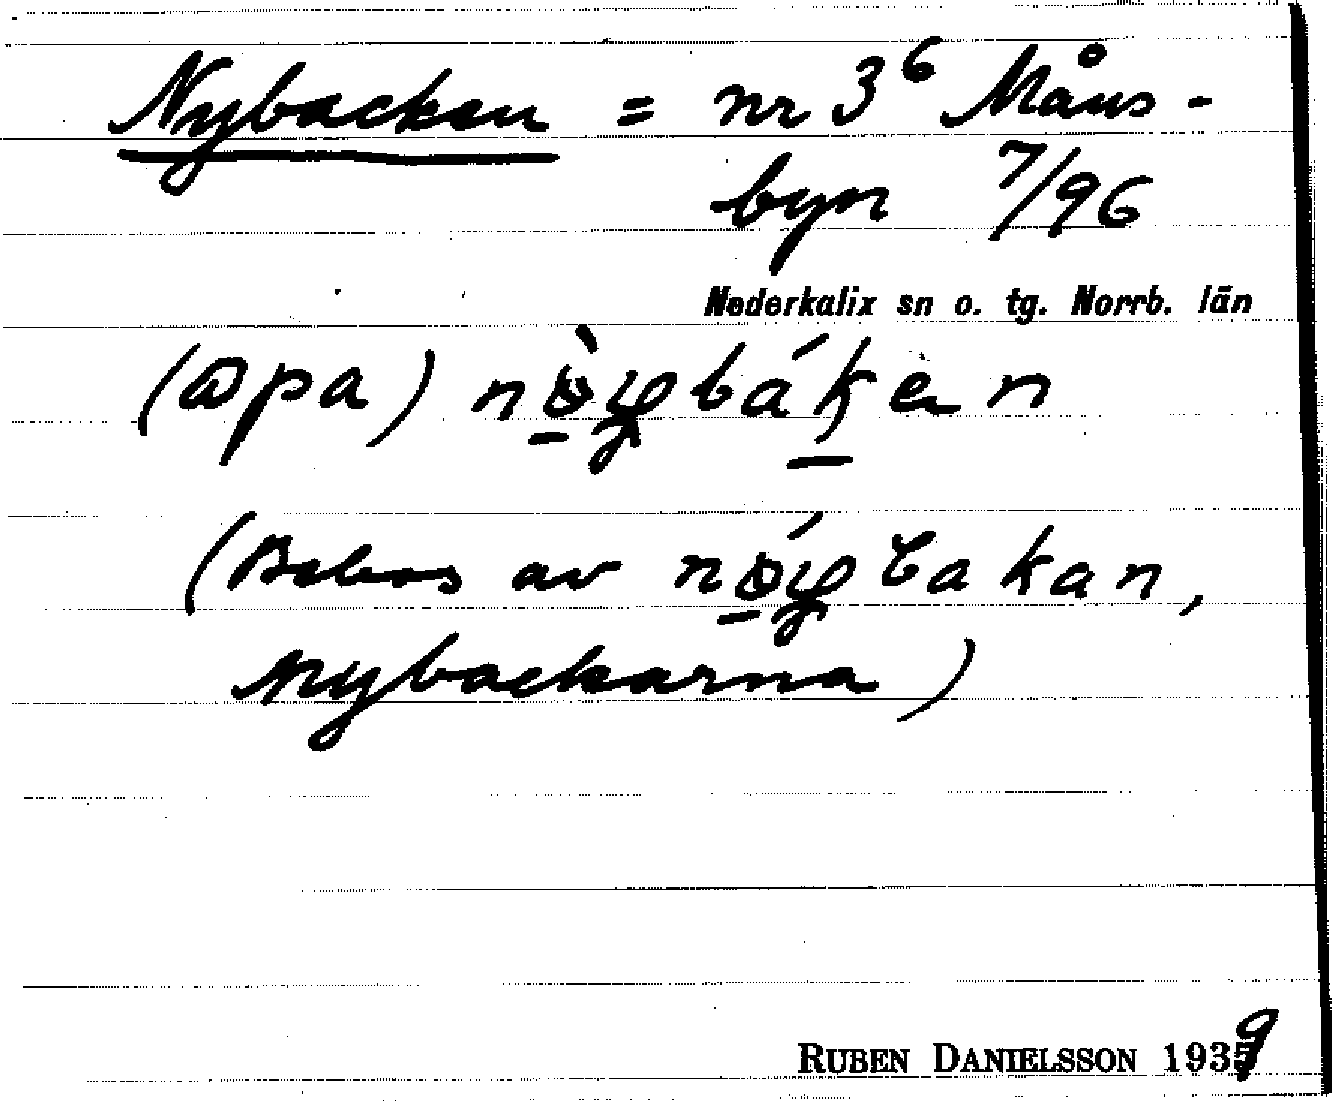 Nybacken = nr 3⁶ Måns-
byn 7/96
Nederkalix sn o. tg. Norrb. län
(apa)
(Bebos av
nybackarna)
RUBEN DANIELSSON 1939